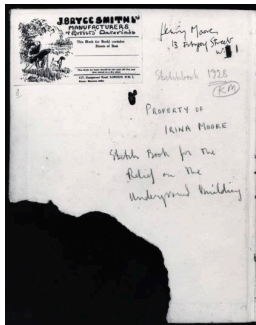 J. BRYCE SMITH Ld
MANUFACTURERS
of Artists' Materials
This Block (or Book) contains
Sheets of Best
117, Hampstead Road, LONDON, N.W.1.
Henry Moore
13 Street
W
Sketchbook 1928
PROPERTY OF
IRINA MOORE
Sketch Book for the
Relief on the
Underground Building